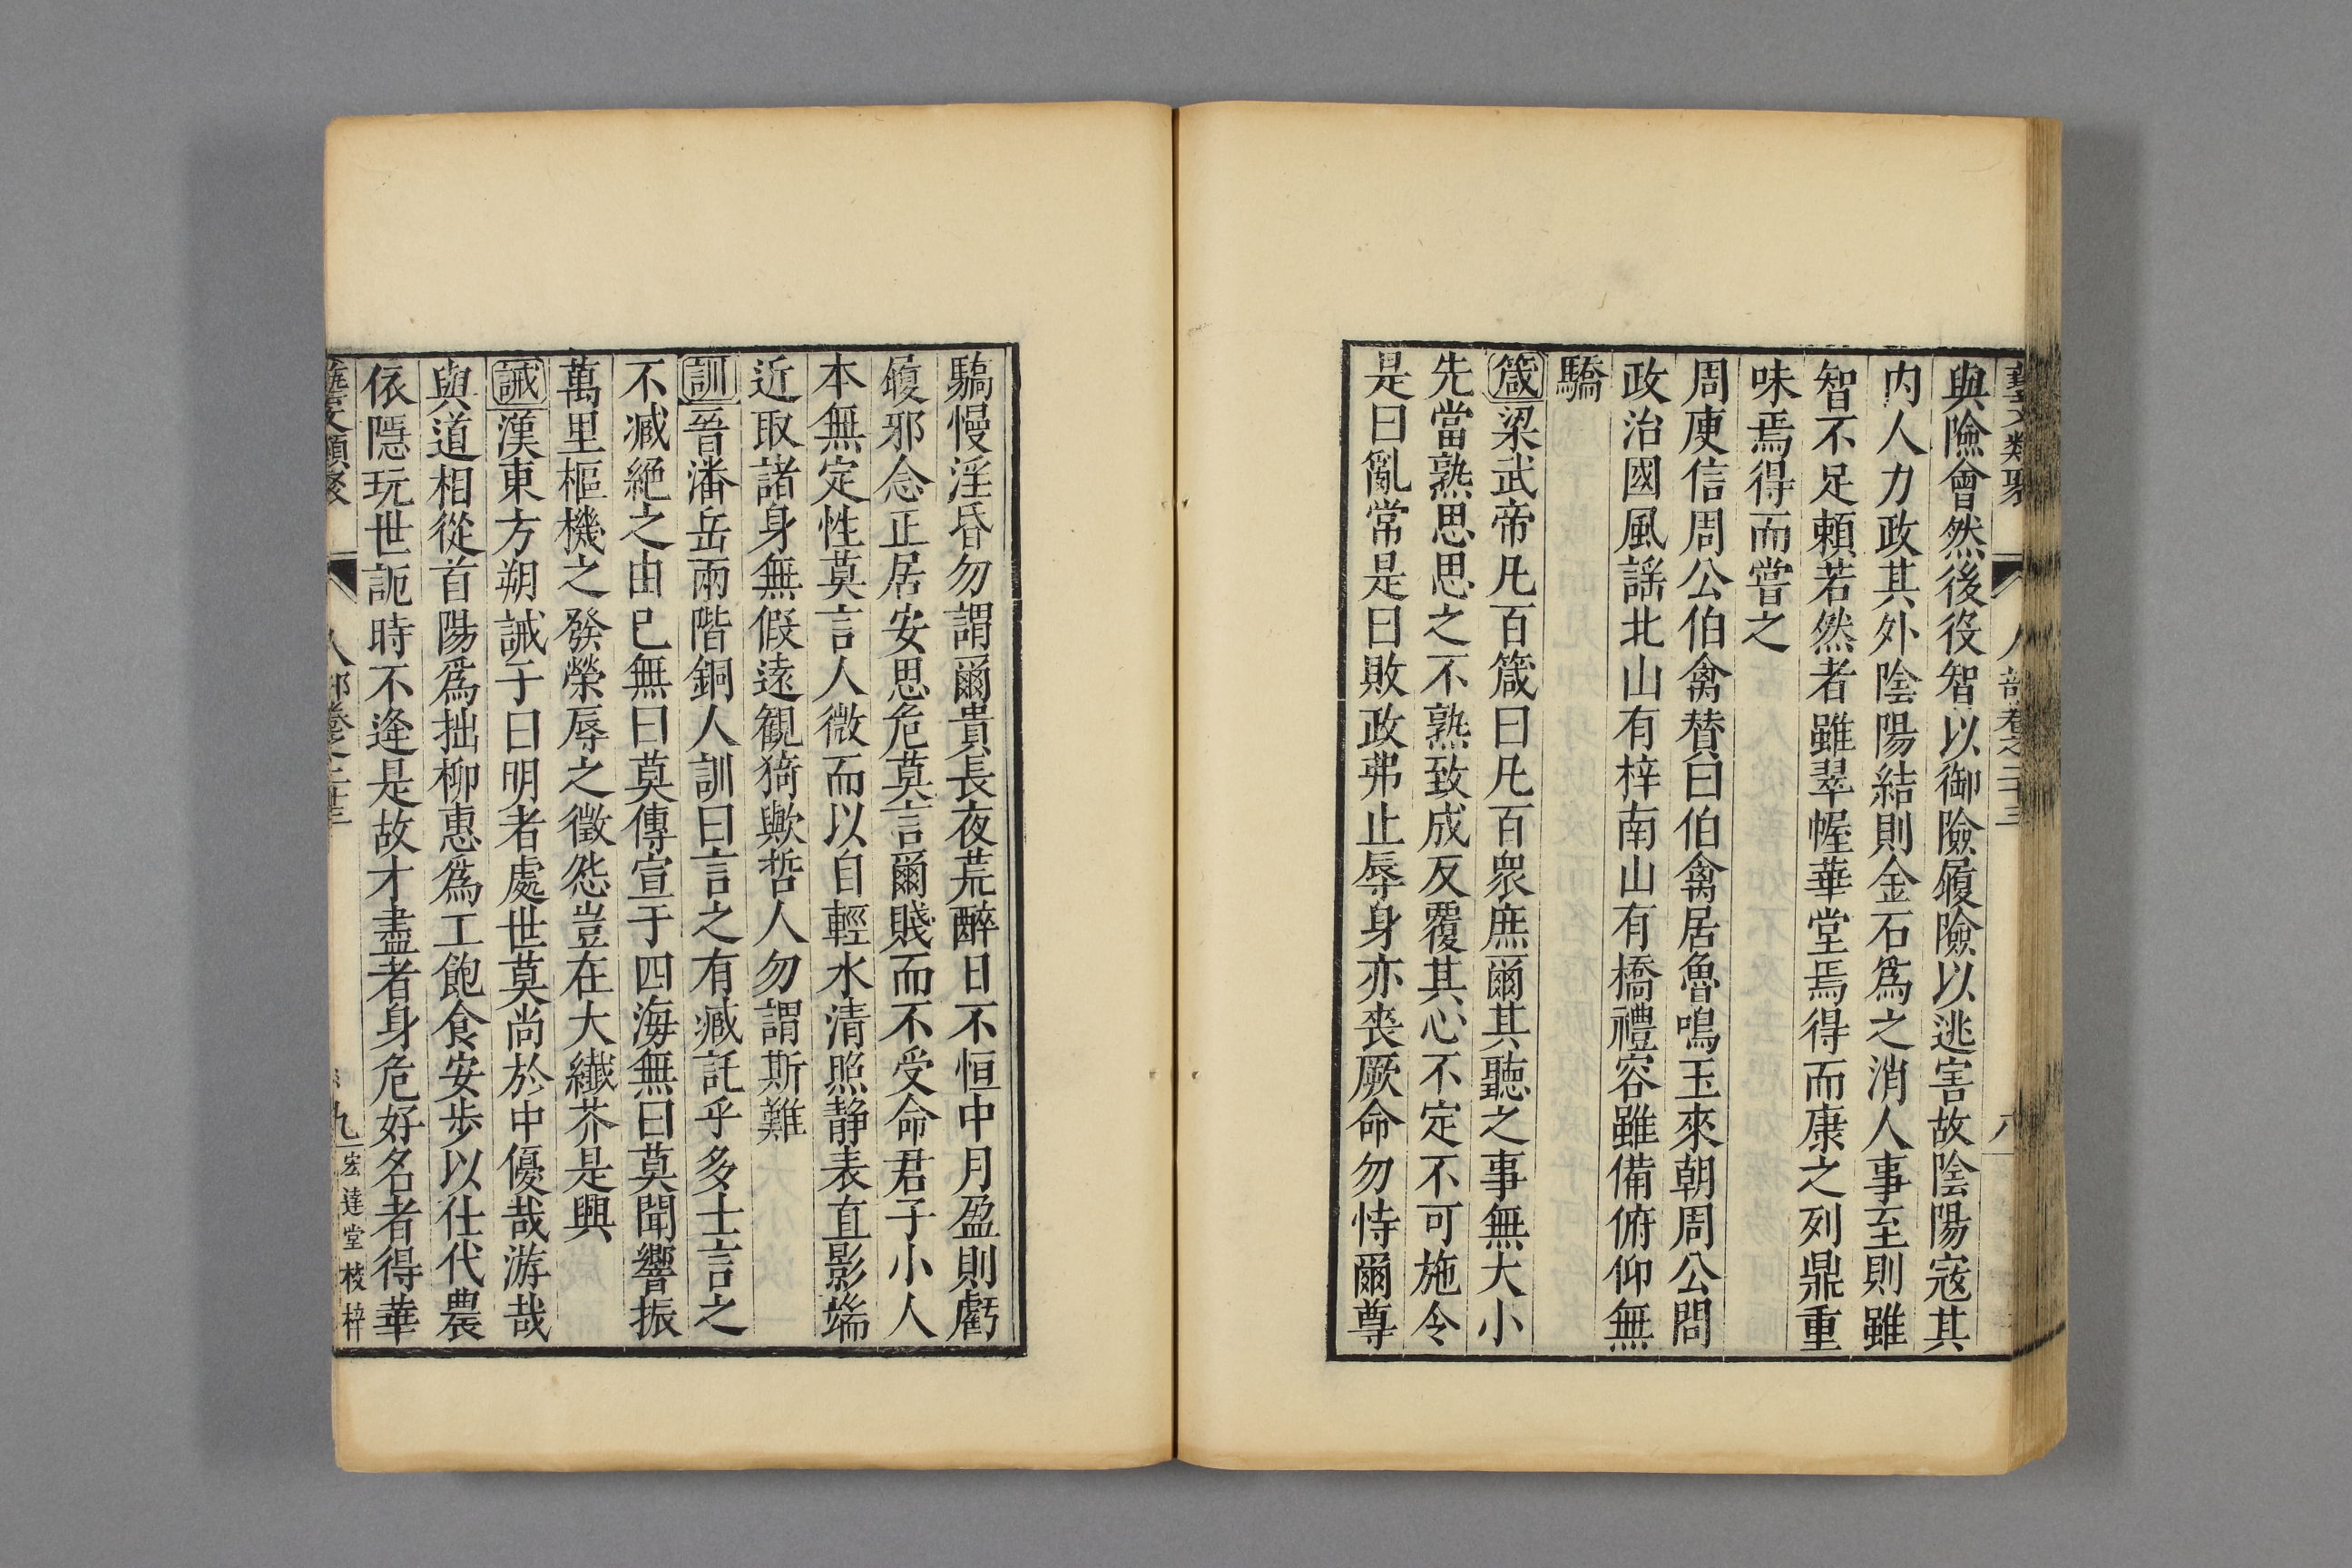 藝文類聚 人部卷之二十三 八
與險會然後役智以御險履險以逃害故陰陽寇其
内人力政其外陰陽結則金石爲之消人事至則雖
智不足頼若然者雖翠幄華堂焉得而康之列鼎重
味焉得而嘗之
周庾信周公伯禽賛曰伯禽居魯鳴玉來朝周公問
政治國風謠北山有梓南山有橋禮容雖備俯仰無
驕
箴梁武帝凡百箴曰凡百衆庶爾其聽之事無大小
先當熟思思之不熟致成反覆其心不定不可施令
是曰亂常是曰敗政弗止辱身亦喪厥命勿恃爾尊
驕慢淫昏勿謂爾貴長夜荒醉日不恒中月盈則虧
履邪念正居安思危莫言爾賤而不受命君子小人
本無定性莫言人微而以自輕水清照静表直影端
近取諸身無假遠觀猗歟哲人勿謂斯難
訓晉潘岳兩階銅人訓曰言之有臧託乎多士言之
不臧絕之由已無曰莫傳宣于四海無曰莫聞響振
萬里樞機之發榮辱之徵怨豈在大纎芥是興
誡漢東方朔誡子曰明者處世莫尚於中優哉游哉
與道相從首陽爲拙柳惠爲工飽食安步以仕代農
依隱玩世詭時不逢是故才盡者身危好名者得華
藝文類聚 人部卷之二十三 九 宏達堂校梓